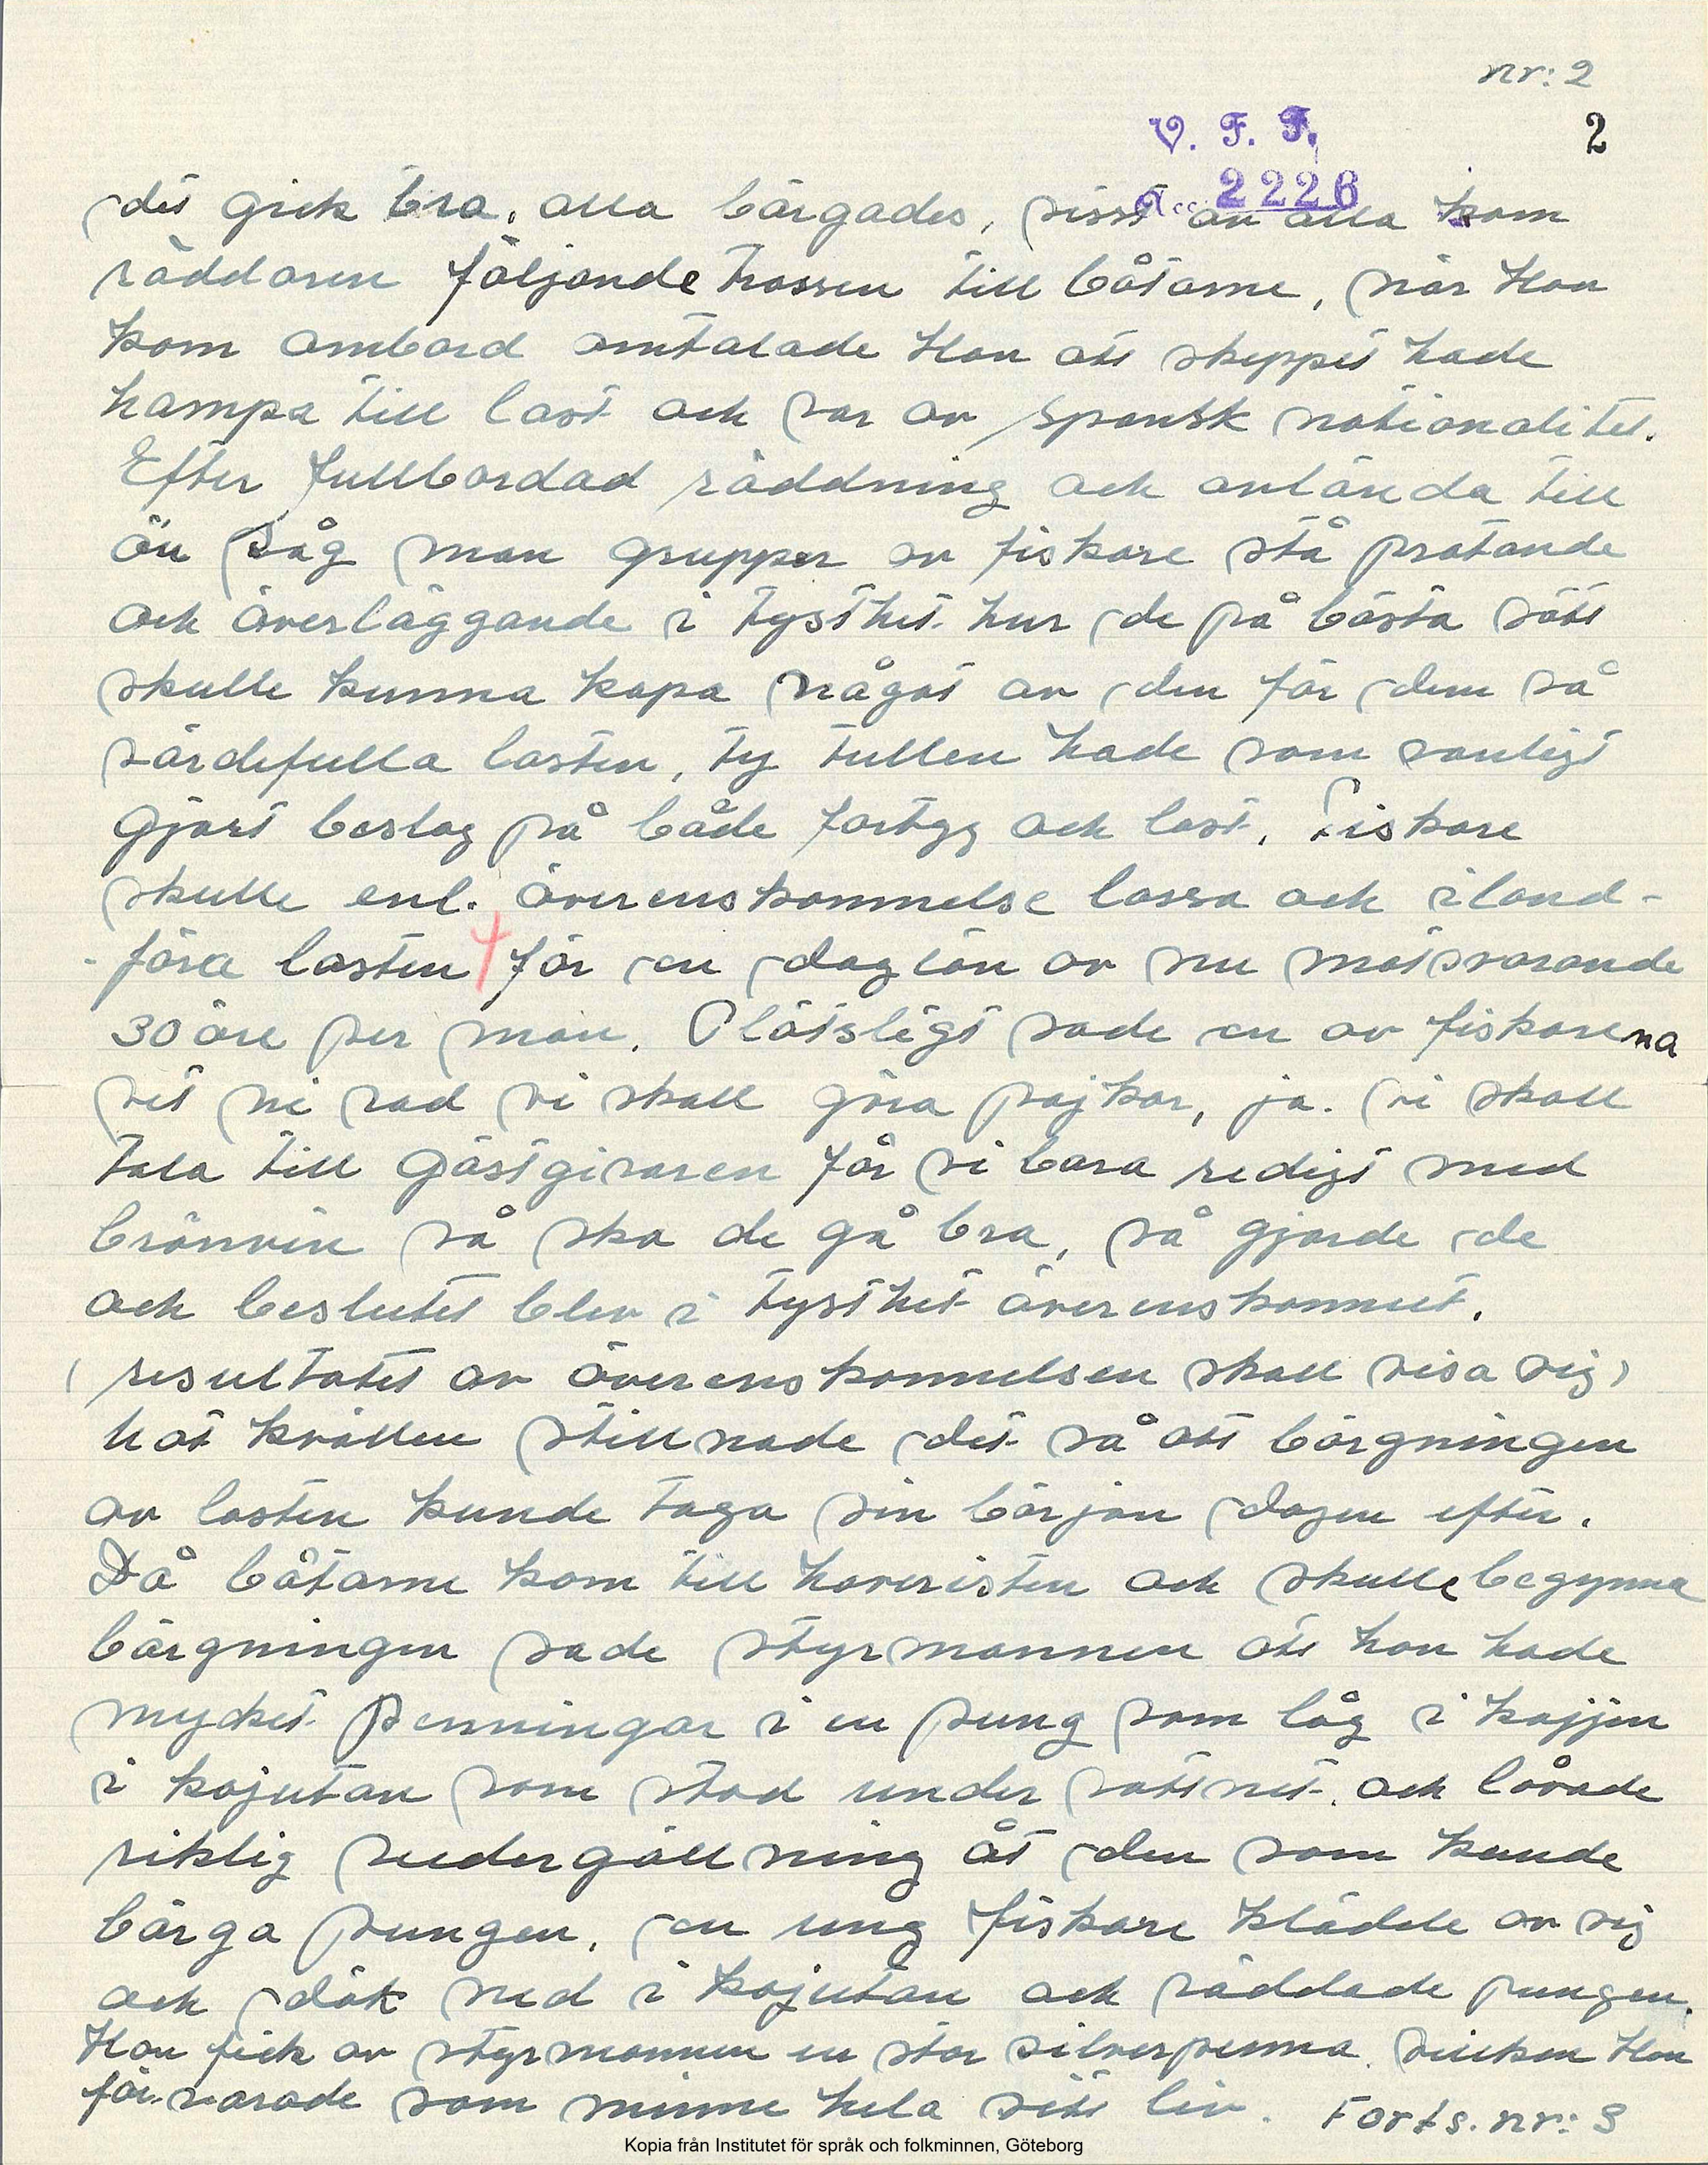 nr: 2
V. F. F. 2
acc. 2226
det gick bra, alla bärgades, sisst av alla kom
räddaren följande trossen till båtarne, när Han
kom ombord omtalade Han att skeppet hade
hampa till last och var av spansk nationalitet.
Efter fullbordad räddning och anlända till
ön såg man grupper av fiskare stå pratande
och överläggande i tysthet hur de på bästa sätt
skulle kunna kapa något av den för dem så
värdefulla lasten, ty tullen hade som vanligt
gjort beslag på både fartyg och last. Fiskare
skulle enl. överenskommelse lossa och iland-
-föra lasten för en daglön av nu motsvarande
30 öre per man. Plötsligt sade en av fiskarena
vet ni vad vi skall göra pojkar, ja. vi skall
tala till gästgivaren får vi bara redigt med
brännvin så ska de gå bra, så gjorde de
och beslutet blev i tysthet överenskommet.
(resultatet av överenskommelsen skall visa sig)
hot kvällen stillnade det så att bärgningen
av lasten kunde taga sin början dagen efter.
Då båtarne kom till haveristen och skulle begynna
bärgningen sade styrmannen att han hade
mycket penningar i en pung som låg i kojjen
i kajutan som stod under vattnet. och lovade
riklig vedergällning åt den som kunde
bärga pungen, en ung fiskare klädde av sig
och dök ned i kajutan och räddade pungen.
Han fick av styrmannen en stor silverpenna vilken Han
förvarade som minne hela sitt liv. Forts. nr: 3
Kopia från Institutet för språk och folkminnen, Göteborg